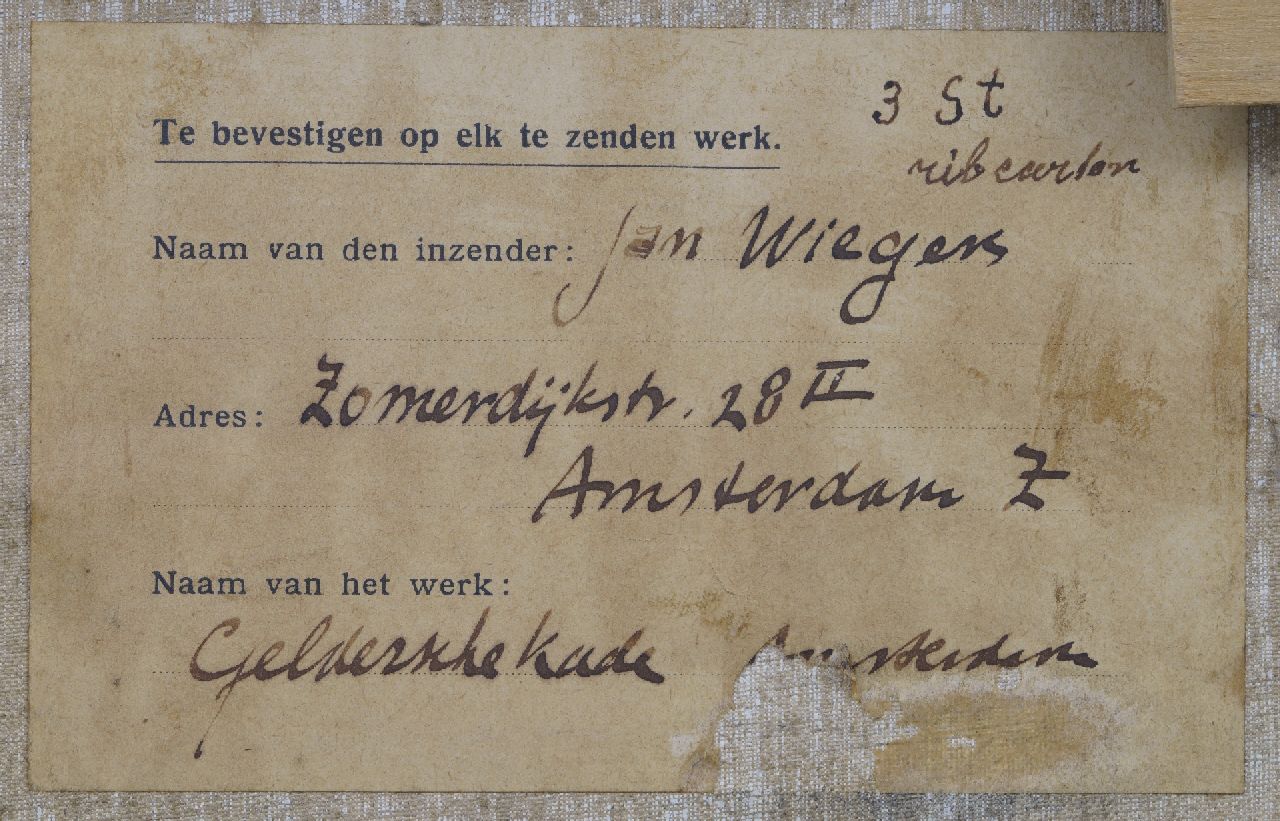 3 St
Te bevestigen op elk te zenden werk.
ribcarton
Naam van den inzender: Jan Wiegers
Adres: Zomerdijkstr. 28 II
Amsterdam Z
Naam van het werk:
Gelderschekade Amsterdam